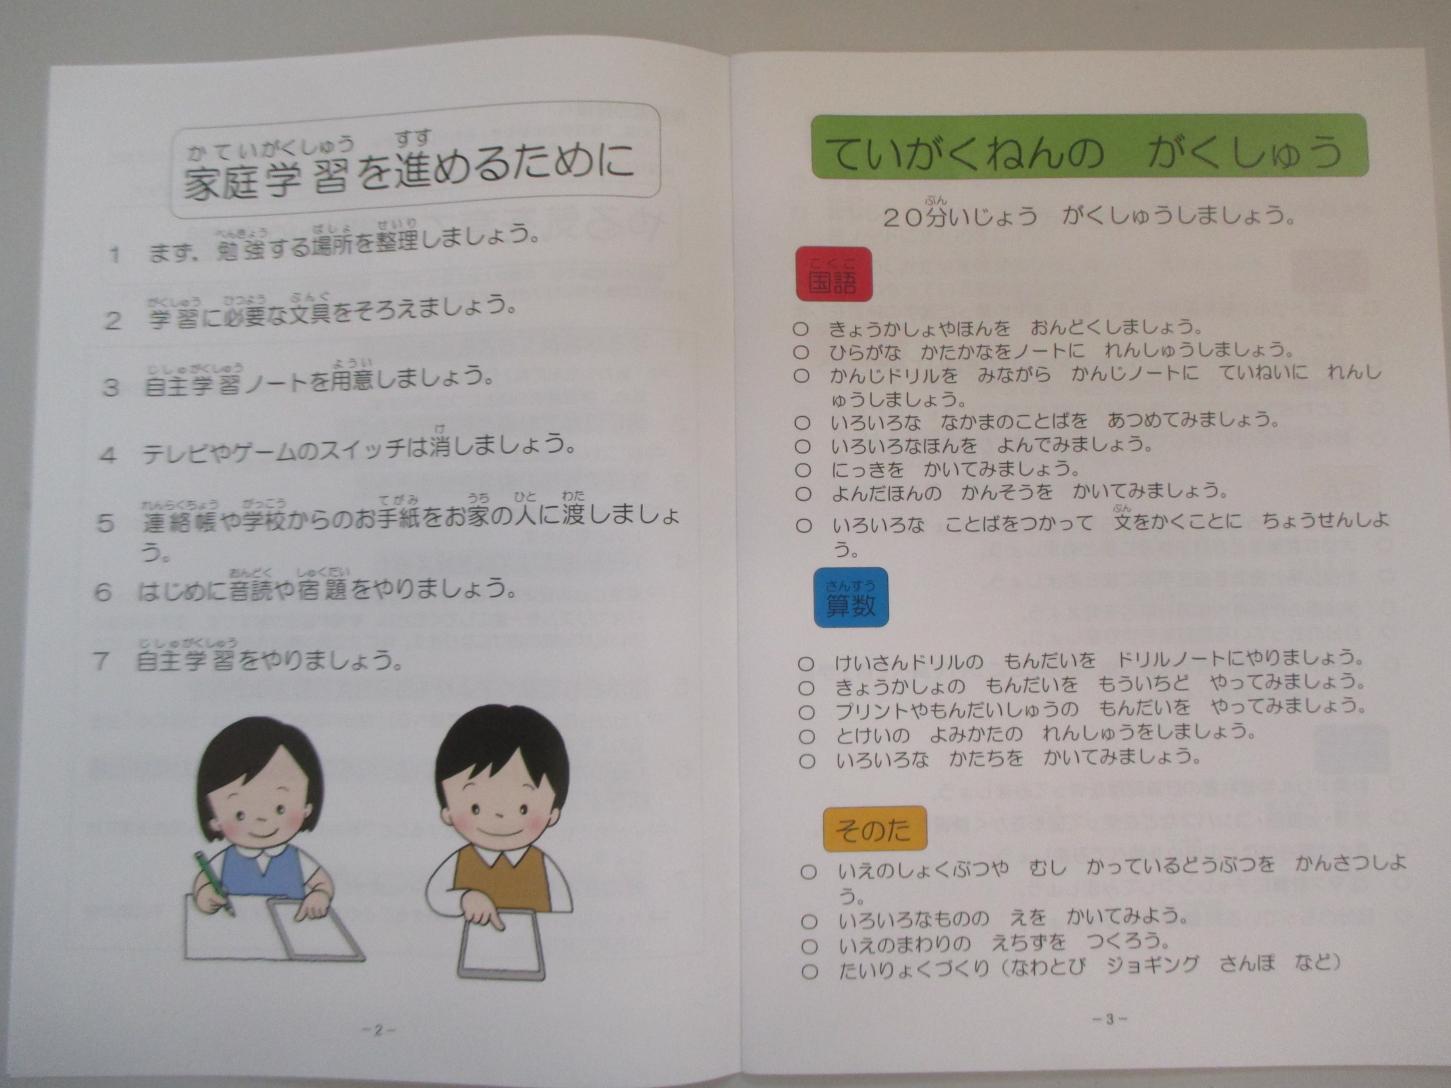 かていがくしゅう すす
家庭学習を進めるために
べんきょう ばしょ せいり
1 まず、勉強する場所を整理しましょう。
がくしゅう ひつよう ぶんぐ
2 学習に必要な文具をそろえましょう。
じしゅがくしゅう ようい
3 自主学習ノートを用意しましょう。
け
4 テレビやゲームのスイッチは消しましょう。
れんらくちょう がっこう てがみ うち ひと わた
5 連絡帳や学校からのお手紙をお家の人に渡しましょ
う。
おんどく しゅくだい
6 はじめに音読や宿題をやりましょう。
じしゅがくしゅう
7 自主学習をやりましょう。
－2－
ていがくねんの がくしゅう
ぷん
20分いじょう がくしゅうしましょう。
こくご
国語
○ きょうかしょやほんを おんどくしましょう。
○ ひらがな かたかなをノートに れんしゅうしましょう。
○ かんじドリルを みながら かんじノートに ていねいに れんし
ゅうしましょう。
○ いろいろな なかまのことばを あつめてみましょう。
○ いろいろなほんを よんでみましょう。
○ にっきを かいてみましょう。
○ よんだほんの かんそうを かいてみましょう。
ぶん
○ いろいろな ことばをつかって 文をかくことに ちょうせんしよ
う。
さんすう
算数
○ けいさんドリルの もんだいを ドリルノートにやりましょう。
○ きょうかしょの もんだいを もういちど やってみましょう。
○ プリントやもんだいしゅうの もんだいを やってみましょう。
○ とけいの よみかたの れんしゅうをしましょう。
○ いろいろな かたちを かいてみましょう。
そのた
○ いえのしょくぶつや むし かっているどうぶつを かんさつしよ
う。
○ いろいろなものの えを かいてみよう。
○ いえのまわりの えちずを つくろう。
○ たいりょくづくり（なわとび ジョギング さんぽ など）
－3－